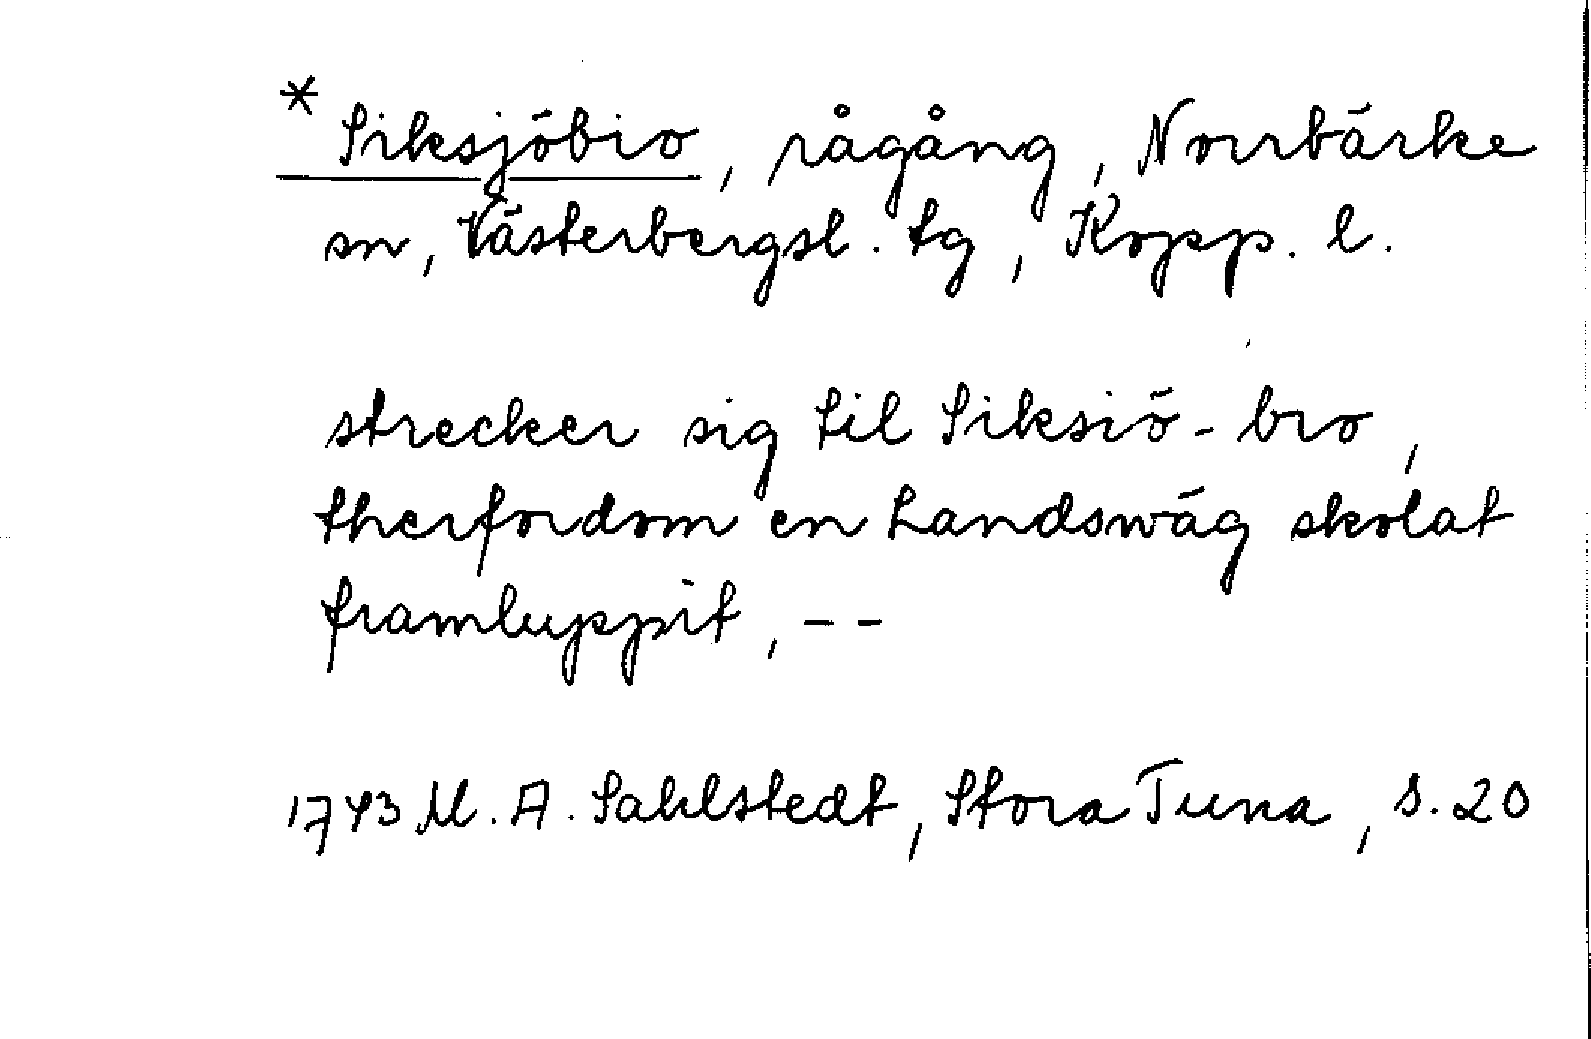 * Siksjöbro, rågång, Norrbärke
sn, Västerbergsl. tg, Kopp. l.
strecker sig til Siksiö-bro,
therfordom en Landswäg skolat
framluppit, --
1743 M. A. Sahlstedt, Stora Tuna, s. 20